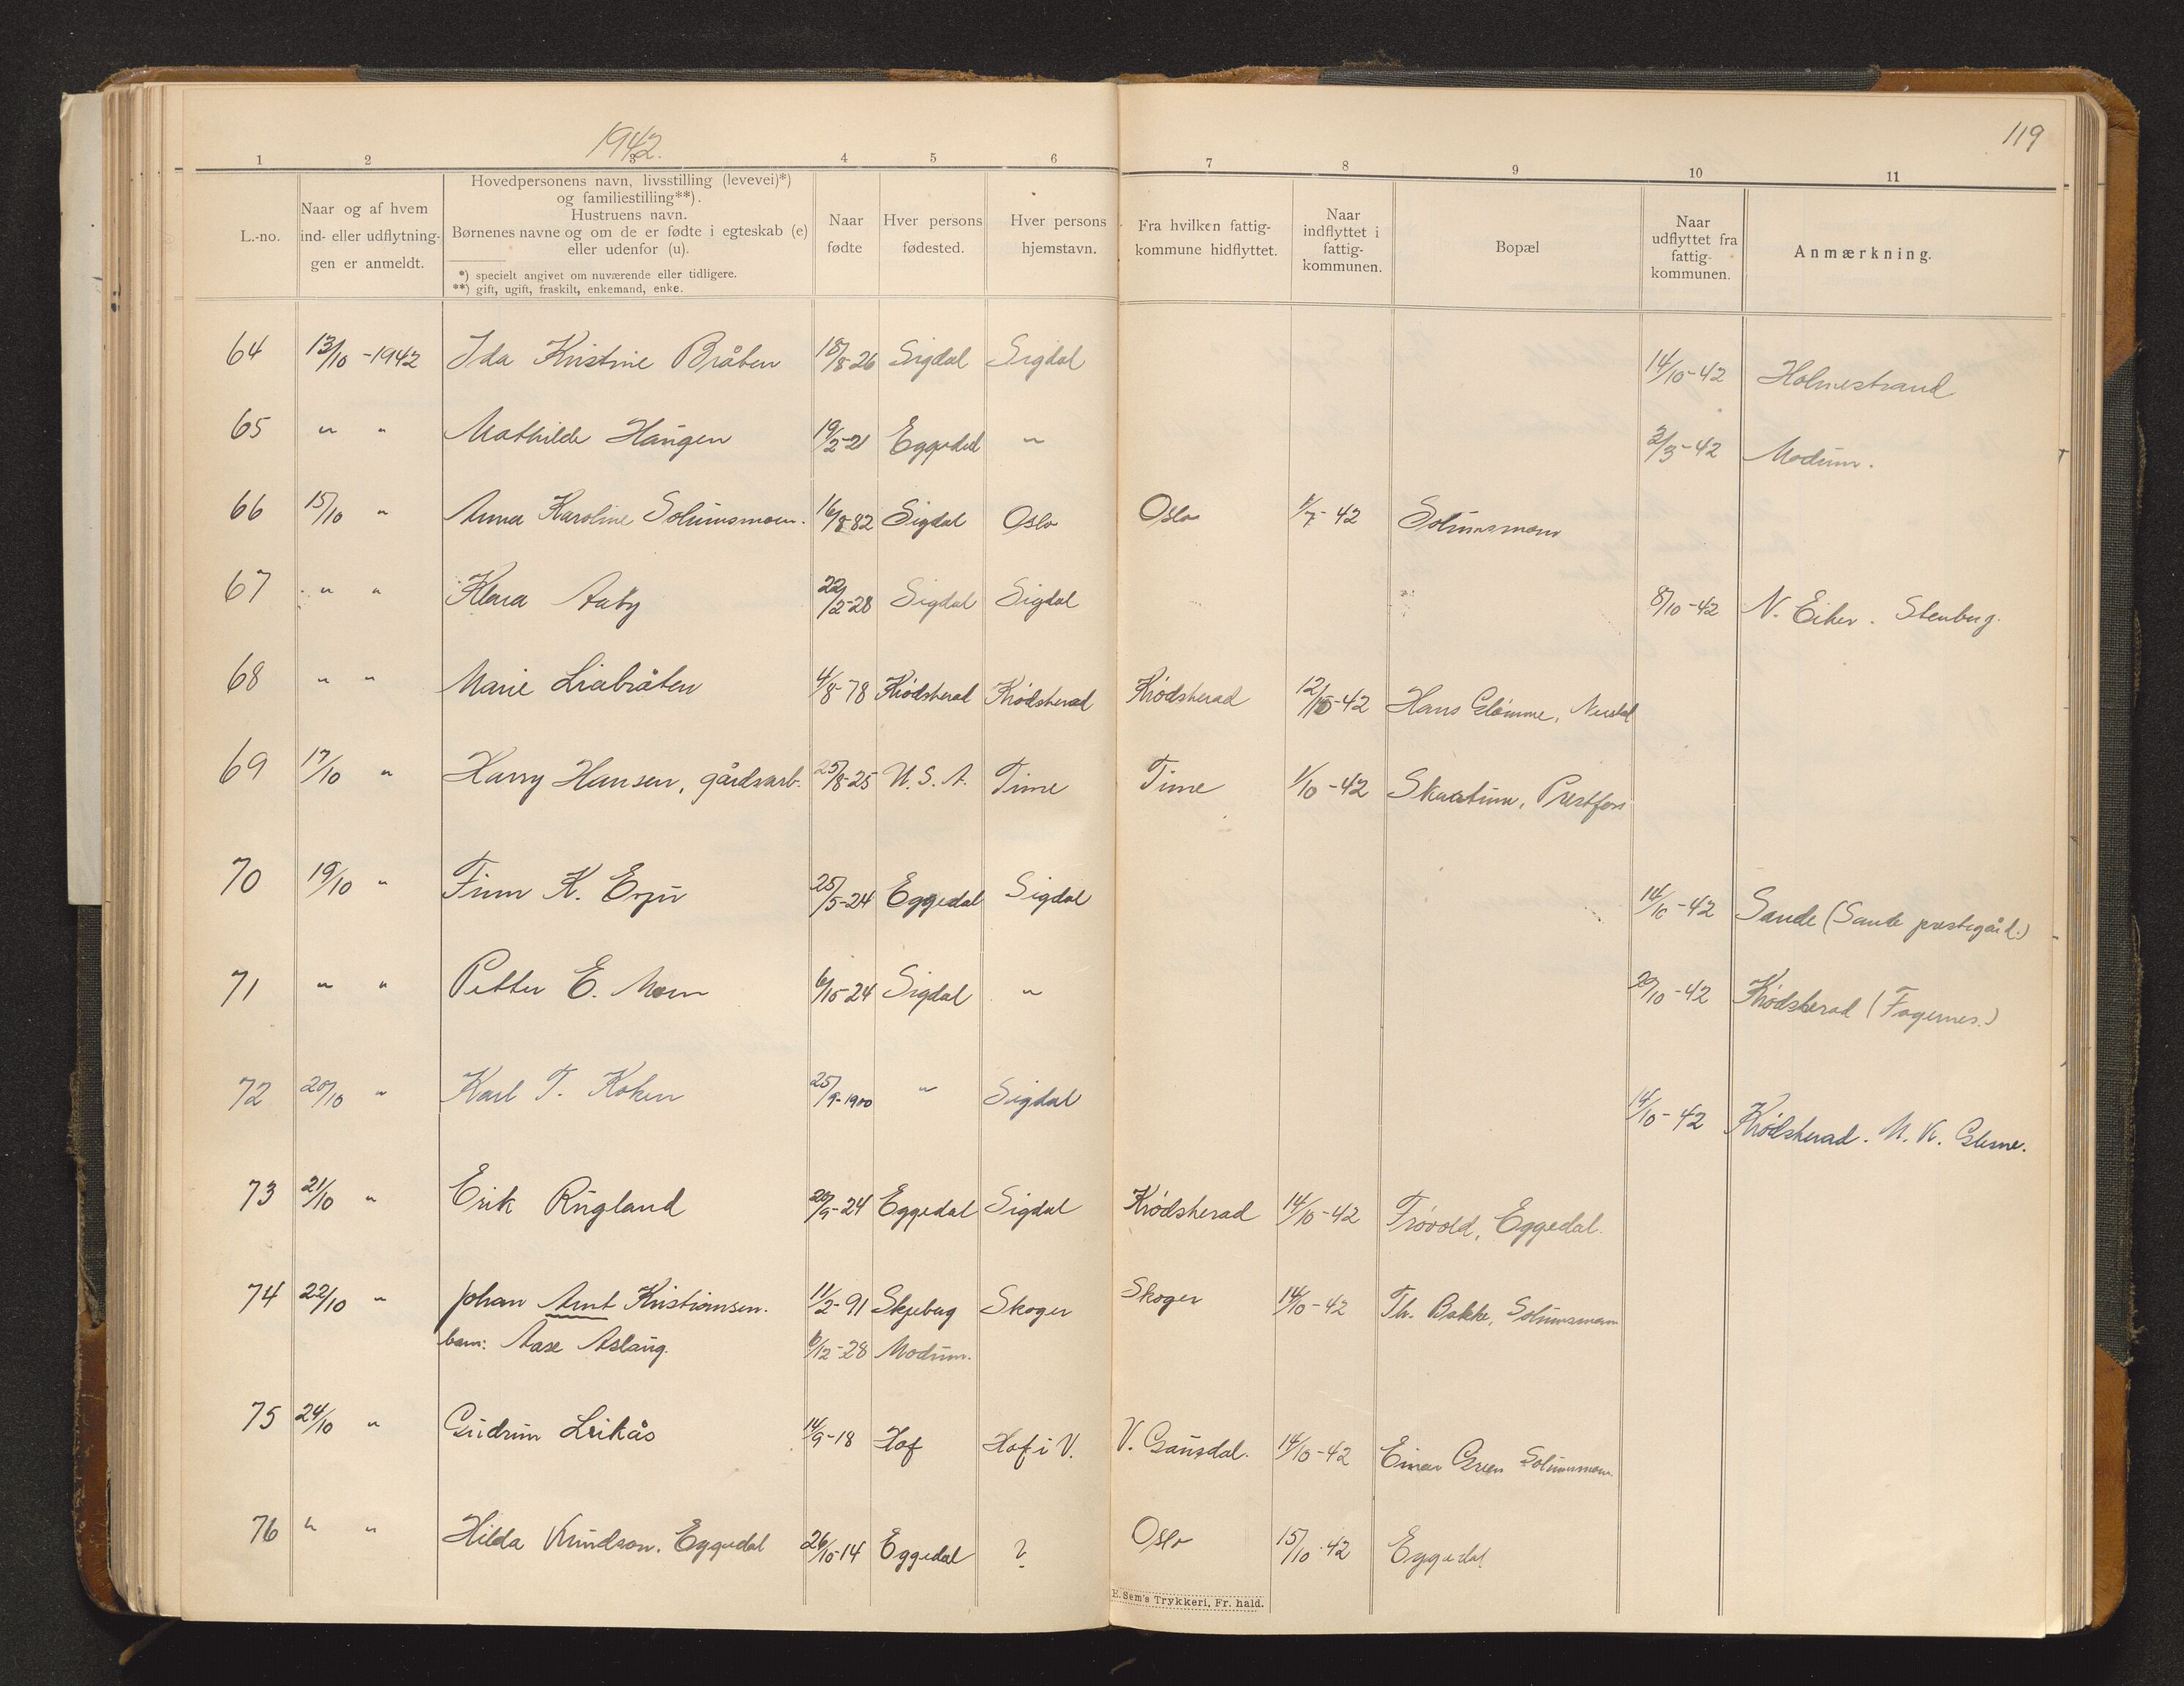 1942.
119
1 2 3 4 5 6 7 8 9 10 11
L.-no.
Naar og af hvem
ind- eller udflytnin-
gen er anmeldt.
Hovedpersonens navn, livsstilling (levevei)*)
og familiestilling**).
Hustruens navn.
Børnenes navne og om de er fødte i egteskab (e)
eller udenfor (u).
*) specielt angivet om nuværende eller tidligere.
**) gift, ugift, fraskilt, enkemand, enke.
Naar
fødte
Hver persons
fødested.
Hver persons
hjemstavn.
Fra hvilken fattig-
kommune hidflyttet.
Naar
indflyttet i
fattig-
kommunen.
Bopæl
Naar
udflyttet fra
fattig-
kommunen.
Anmærkning.
64 13/10 -1942 Ida Kristine Bråten 18/8-26 Sigdal Sigdal 14/10-42 Holmestrand
65 " " Mathilde Haugen 19/2-21 Eggedal " 2/3-42 Modum.
66 15/10 " Anna Karoline Solumsmoen. 16/8-82 Sigdal Oslo Oslo 1/7-42 Solumsmoen
67 " " Klara Aaby 22/2-28 Sigdal Sigdal 8/10-42 N. Eiker. Stenberg.
68 " " Marie Liabråten 4/8-78 Krødsherad Krødsherad Krødsherad 12/10-42 Hans Glømme, Nerdal
69 17/10 " Harry Hansen, gårdsarb. 25/8-25 U.S.A. Time Time 1/10-42 Skartum, Prestfoss
70 19/10 " Finn K. Erju 25/5-24 Eggedal Sigdal 14/10-42 Sande (Sande prestegård.)
71 " " Petter E. Moen 6/10-24 Sigdal " 20/10-42 Krødsherad (Fagernes.)
72 20/10 " Karl T. Koken 25/9-1900 " Sigdal 14/10-42 Krødsherad. M. K. Glesne.
73 21/10 " Erik Rugland 20/9-24 Eggedal Sigdal Krødsherad 14/10-42 Frøvold, Eggedal.
74 22/10 " Johan Arnt Kristiansen. 11/2-91 Skjeberg Skoger Skoger 14/10-42 Th. Bakke, Solumsmoen
barn: Aase Aslaug. 6/12-28 Modum.
75 24/10 " Gudrun Leikås 14/9-18 Hof Hof i V. V. Gausdal. 14/10-42 Einar Green Solumsmoen.
76 " " Hilda Knudson. Eggedal 26/10-14 Eggedal ? Oslo 15/10-42 Eggedal
E. Sem's Trykkeri, Fr. hald.